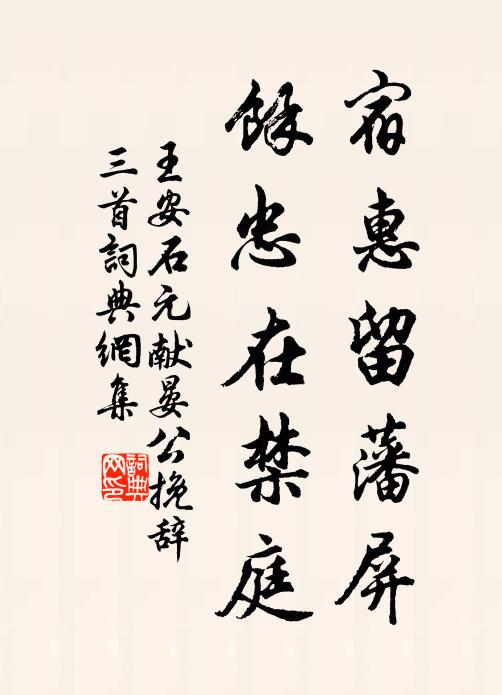 宿惠留藩屏
餘忠在禁庭
王安石元献晏公挽辞
三首詞典網集
詞典
网印